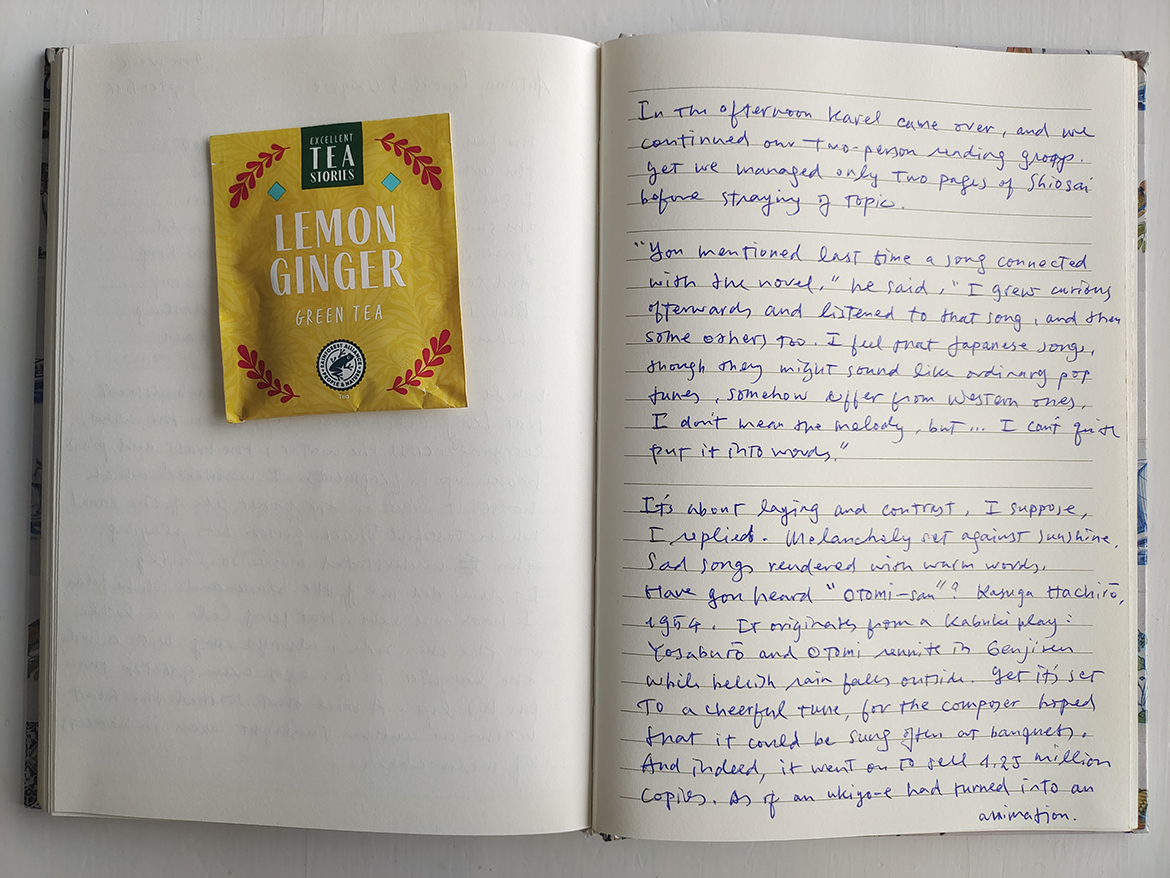 EXCELLENT
TEA
STORIES
LEMON
GINGER
GREEN TEA
RAINFOREST ALLIANCE
PEOPLE & NATURE
TEA
In the afternoon Karel came over, and we
continued our two-person reading group.
Yet we managed only two pages of Shiosai
before straying off topic.
"You mentioned last time a song connected
with the novel," he said, "I grew curious
afterwards and listened to that song, and then
some others too. I feel that Japanese songs,
though they might sound like ordinary pop
tunes, somehow differ from Western ones.
I don't mean the melody, but ... I can't quite
put it into words."
It's about laying and contrast, I suppose,
I replied. Melancholy set against sunshine.
Sad songs rendered with warm words.
Have you heard "Otomi-san"? Kasuga Hachirō,
1954. It originates from a Kabuki play:
Yosaburō and Otomi reunite in Genjiten
while hellish rain falls outside. Yet it's set
to a cheerful tune, for the composer hoped
that it could be sung often at banquets.
And indeed, it went on to sell 1.25 million
copies. As if an ukiyo-e had turned into an
animation.